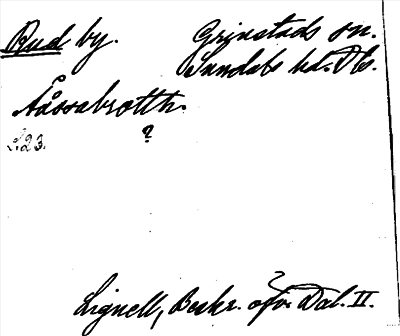 Rud by. Grinstads sn.
Sundals hd. Ds.
Ååssabrotth.
?
S.23.
Lignell, Beskr. öfv. Dal. II.